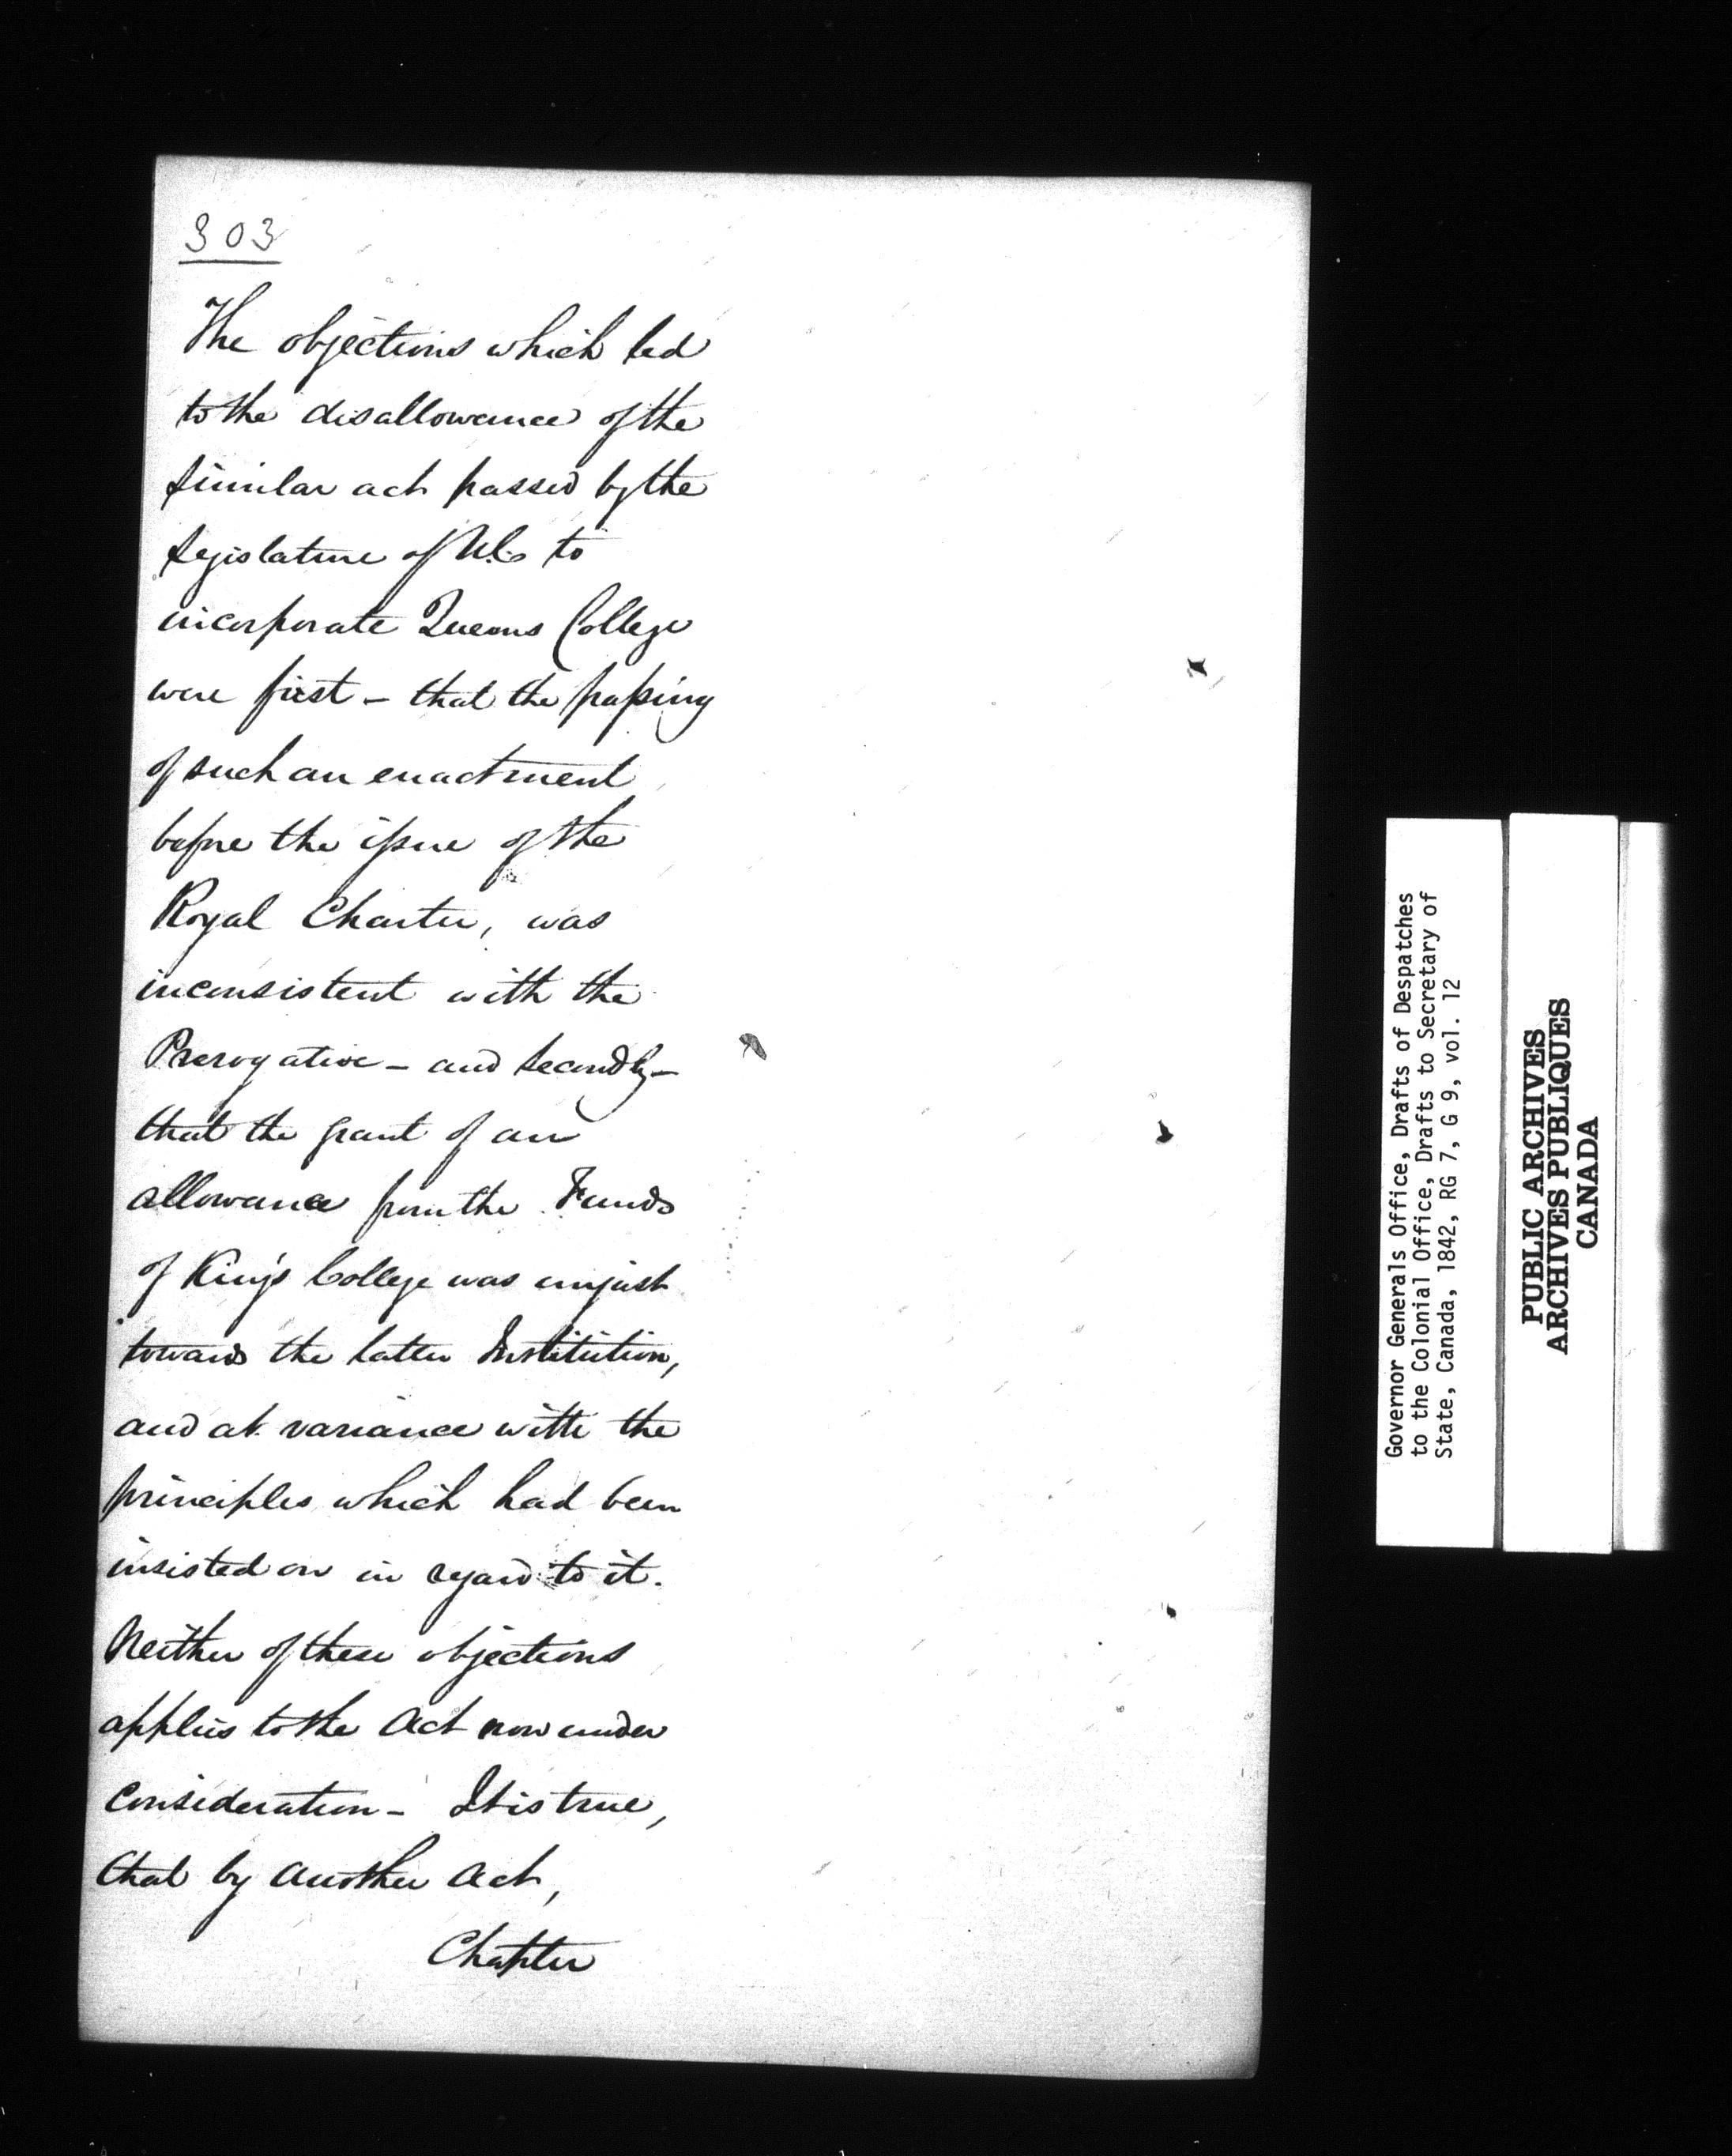 303
The objections which led
to the disallowance of the
similar act passed by the
legislature of U.C. to
incorporate Queens College
were first - that the passing
of such an enactment
before the issue of the
Royal Charter, was
inconsistent with the
Prerogative - and secondly -
that the grant of an
allowance from the Funds
of King's College was unjust
towards the latter Institution,
and at variance with the
principles which had been
insisted on in regard to it.
Neither of these objections
applies to the Act now under
Consideration - It is true,
that by another Act,
Chapter
Governor Generals Office, Drafts of Despatches
to the Colonial Office, Drafts to Secretary of
State, Canada, 1842, RG 7, G 9, vol. 12
PUBLIC ARCHIVES
ARCHIVES PUBLIQUES
CANADA